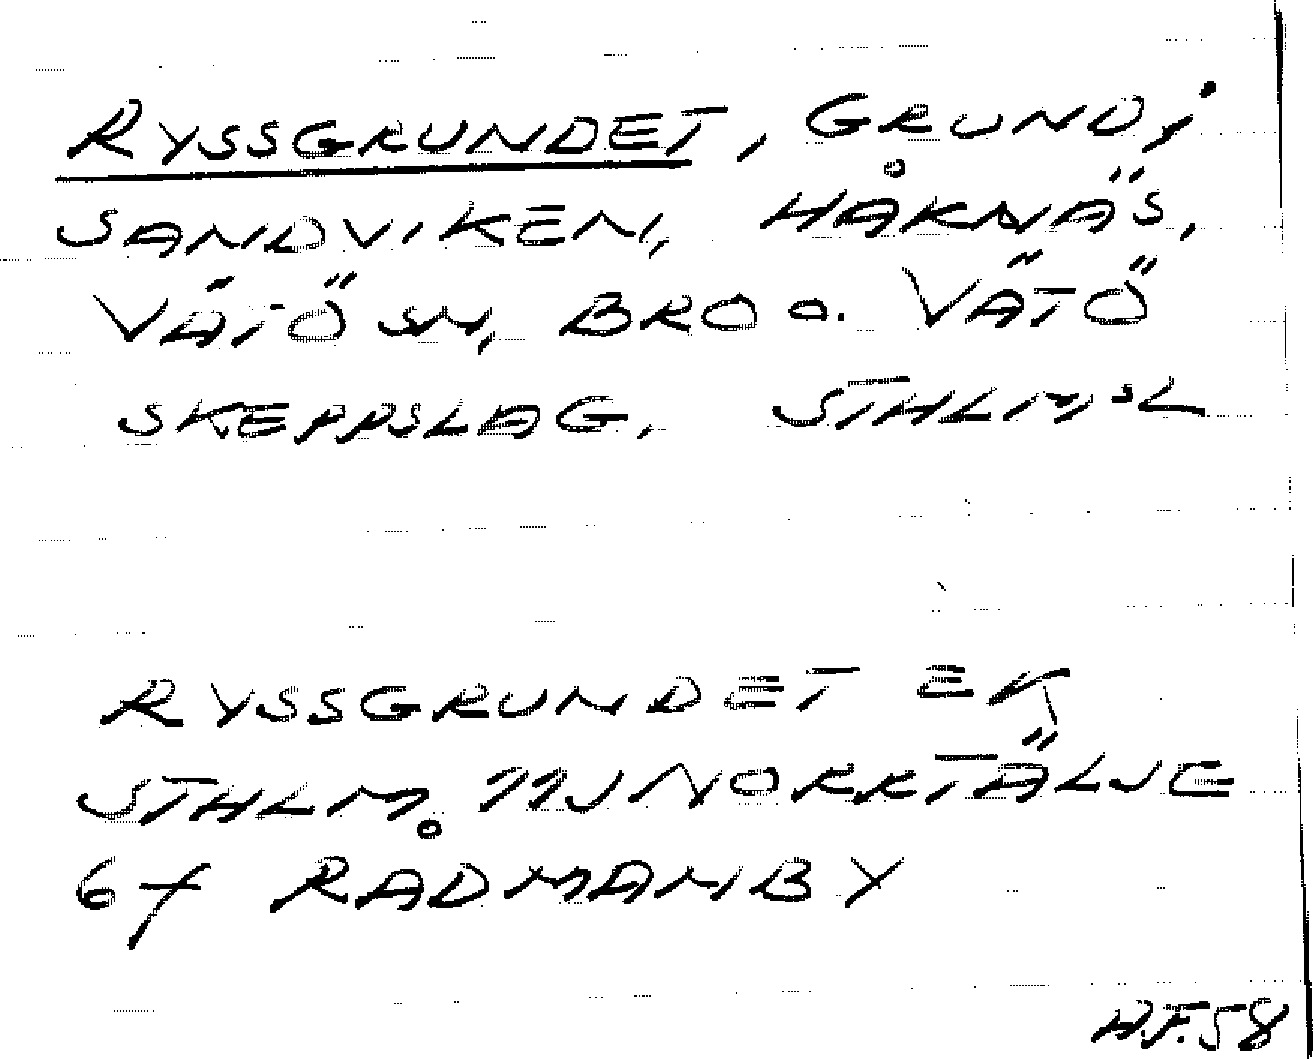 RYSSGRUNDET, GRUND i
SANDVIKEN, HÅKNÄS,
VÄTÖ SN, BRO O. VÄTÖ
SKEPPSLAG, STHLMSL
RYSSGRUNDET EK
STHLM. 11J NORRTÄLJE
6f RÅDMANBY
H.F.58